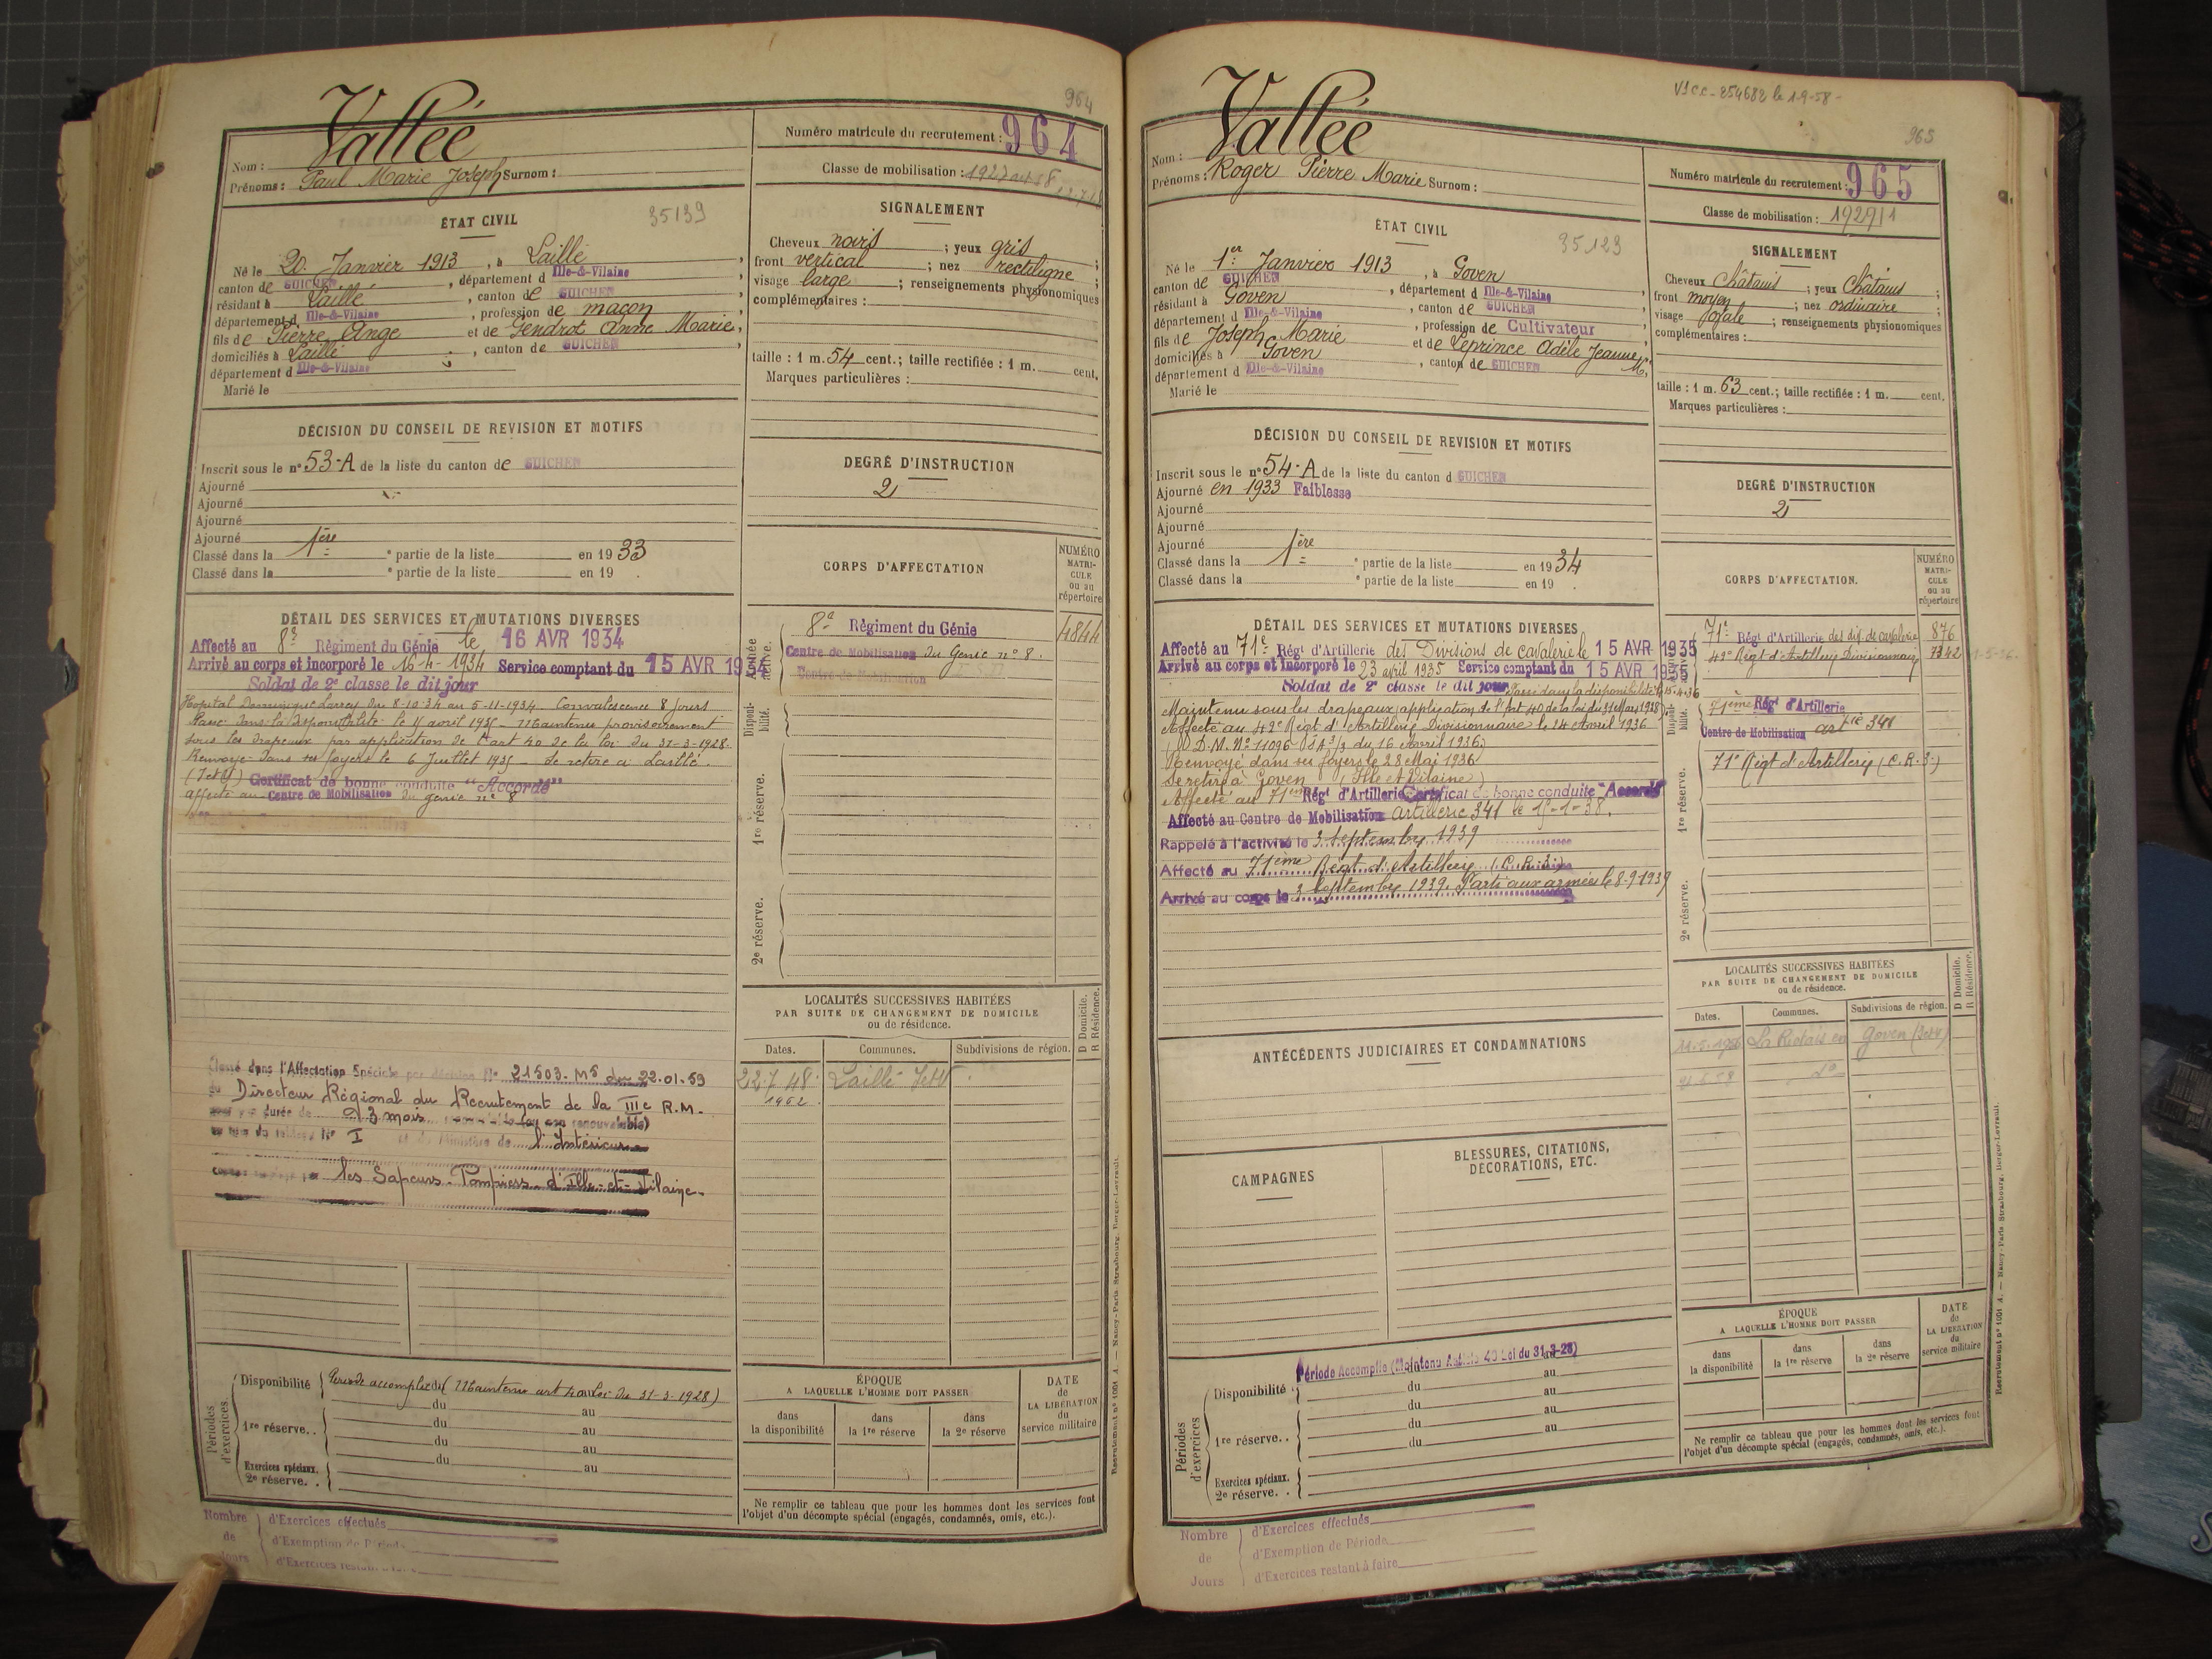 964
Vallée
Nom :
Prénoms : Paul Marie Joseph Surnom :
Numéro matricule du recrutement : 964
Classe de mobilisation : 1927
ÉTAT CIVIL
35139
Né le 20 Janvier 1913, à Laillé,
canton de GUICHEN, département d Ille-&-Vilaine,
résidant à Laillé, canton de GUICHEN,
département d Ille-&-Vilaine, profession de maçon,
fils de Pierre Ange et de Gendrot Anne Marie,
domiciliés à Laillé, canton de GUICHEN,
département d Ille-&-Vilaine
Marié le
SIGNALEMENT
Cheveux noirs ; yeux gris ;
front vertical ; nez rectiligne ;
visage large ; renseignements physionomiques
complémentaires :
taille : 1 m. 54 cent.; taille rectifiée : 1 m. cent.
Marques particulières :
DÉCISION DU CONSEIL DE REVISION ET MOTIFS
Inscrit sous le n° 53-A de la liste du canton de GUICHEN
Ajourné
Ajourné
Ajourné
Ajourné
Classé dans la 1ère partie de la liste en 1933
Classé dans la partie de la liste en 19 .
DEGRÉ D'INSTRUCTION
2
CORPS D'AFFECTATION
NUMÉRO MATRICULE ou au répertoire
DÉTAIL DES SERVICES ET MUTATIONS DIVERSES
Affecté au 8e Régiment du Génie le 16 AVR 1934
Arrivé au corps et incorporé le 16-4-1934 Service comptant du 15 AVR 1934
Soldat de 2e classe le dit jour
Hopital Dominique Larrey du 8-10-34 au 5-11-1934. Convalescence 8 jours
Passé dans la disponibilité le 15 avril 1935 - Maintenu provisoirement
sous les drapeaux par application de l'art 40 de la loi du 31-3-1928.
Renvoyé dans ses foyers le 6 Juillet 1935 - se retire à Laillé.
(I et V) Certificat de bonne conduite "Accordé"
Affecté au Centre de Mobilisation du génie n° 8
Année active.
8e Régiment du Génie 4844
Centre de Mobilisation du Génie n° 8.
Centre de Mobilisation
Disponibilité.
1re réserve.
2e réserve.
LOCALITÉS SUCCESSIVES HABITÉES
PAR SUITE DE CHANGEMENT DE DOMICILE
ou de résidence.
D Domicile.
R Résidence.
Dates. Communes. Subdivisions de région.
22 7 48. Laillé I et V.
1952
Classé dans l'Affectation Spéciale par décision N° 21503. MS du 22.01.59
du Directeur Régional du Recrutement de la IIIe R.M.
pour une durée de 3 mois (ou non renouvelable)
N° I Ministère de l'Intérieur
les Sapeurs-Pompiers d'Ille-et-Vilaine.
Périodes d'exercices.
Disponibilité Période accomplie du (Maintenu art 40 loi du 31-3-1928)
du au
1re réserve. . du au
du au
Exercices spéciaux. du au
2e réserve. .
ÉPOQUE
A LAQUELLE L'HOMME DOIT PASSER
dans la disponibilité
dans la 1re réserve
dans la 2e réserve
DATE de LA LIBÉRATION du service militaire
Ne remplir ce tableau que pour les hommes dont les services font
l'objet d'un décompte spécial (engagés, condamnés, omis, etc.).
Recrutement n° 1001 A. — Nancy-Paris-Strasbourg, Berger-Levrault.
Nombre de Jours
d'Exercices effectués
d'Exemption de Période
d'Exercices restant à faire
V1CC-254682 le 1-9-58-
965
Vallée
Nom :
Prénoms : Roger Pierre Marie Surnom :
Numéro matricule du recrutement : 965
Classe de mobilisation : 1929/1
ÉTAT CIVIL
35123
Né le 1er Janvier 1913, à Goven
canton de GUICHEN, département d Ille-&-Vilaine,
résidant à Goven, canton de GUICHEN,
département d Ille-&-Vilaine, profession de Cultivateur,
fils de Joseph Marie et de Leprince Adèle Jeanne M.,
domiciliés à Goven, canton de GUICHEN
département d Ille-&-Vilaine
Marié le
SIGNALEMENT
Cheveux châtains ; yeux châtains ;
front moyen ; nez ordinaire ;
visage ovale ; renseignements physionomiques
complémentaires :
taille : 1 m. 63 cent.; taille rectifiée : 1 m. cent.
Marques particulières :
DÉCISION DU CONSEIL DE REVISION ET MOTIFS
Inscrit sous le n° 54-A de la liste du canton d GUICHEN
Ajourné en 1933 Faiblesse
Ajourné
Ajourné
Ajourné
Classé dans la 1ère partie de la liste en 1934
Classé dans la partie de la liste en 19 .
DEGRÉ D'INSTRUCTION
2
CORPS D'AFFECTATION.
NUMÉRO MATRICULE ou au répertoire
DÉTAIL DES SERVICES ET MUTATIONS DIVERSES
Affecté au 71e Régt d'Artillerie des Divisions de cavalerie le 15 AVR 1935
Arrivé au corps et incorporé le 23 avril 1935 Service comptant du 15 AVR 1935
Soldat de 2e classe le dit jour Passé dans la disponibilité le 15-4-36
Maintenu sous les drapeaux (application de l'Art 40 de la loi du 31 Mars 1928)
Affecté au 42e Régt d'Artillerie Divisionnaire le 14 Avril 1936
(D.M. N° 11096 du 16 Avril 1936)
Renvoyé dans ses foyers le 28 Mai 1936
Se retire à Goven (Ille et Vilaine)
Affecté au 71ème Régt d'Artillerie Certificat de bonne conduite "Accordé"
Affecté au Centre de Mobilisation artillerie 341 le 15-1-38.
Rappelé à l'activité le 3 Septembre 1939
Affecté au 71ème Régt d'Artillerie (C.R.S.)
Arrivé au corps le 3 Septembre 1939. Parti aux armées le 8-9-1939
71e Régt d'Artillerie des div. de cavalerie 876
42e Régt d'Artillerie Divisionnaire 7342
71ème Régt d'Artillerie
Centre de Mobilisation artie 341
71e Régt d'Artillerie (C.R.S.)
1re réserve.
2e réserve.
LOCALITÉS SUCCESSIVES HABITÉES
PAR SUITE DE CHANGEMENT DE DOMICILE
ou de résidence.
D Domicile.
R Résidence.
Dates. Communes. Subdivisions de région.
La Ridais en Goven
do
ANTÉCÉDENTS JUDICIAIRES ET CONDAMNATIONS
CAMPAGNES
BLESSURES, CITATIONS,
DÉCORATIONS, ETC.
Périodes d'exercices
Période Accomplie (Maintenu Article 40 Loi du 31-3-28)
Disponibilité . du au
du au
1re réserve. . du au
du au
Exercices spéciaux.
2e réserve. .
ÉPOQUE
A LAQUELLE L'HOMME DOIT PASSER
dans la disponibilité
dans la 1re réserve
dans la 2e réserve
DATE de LA LIBÉRATION du service militaire
Ne remplir ce tableau que pour les hommes dont les services font
l'objet d'un décompte spécial (engagés, condamnés, omis, etc.).
Recrutement n° 1001 A. — Nancy-Paris-Strasbourg, Berger-Levrault.
Nombre de Jours
d'Exercices effectués
d'Exemption de Période
d'Exercices restant à faire